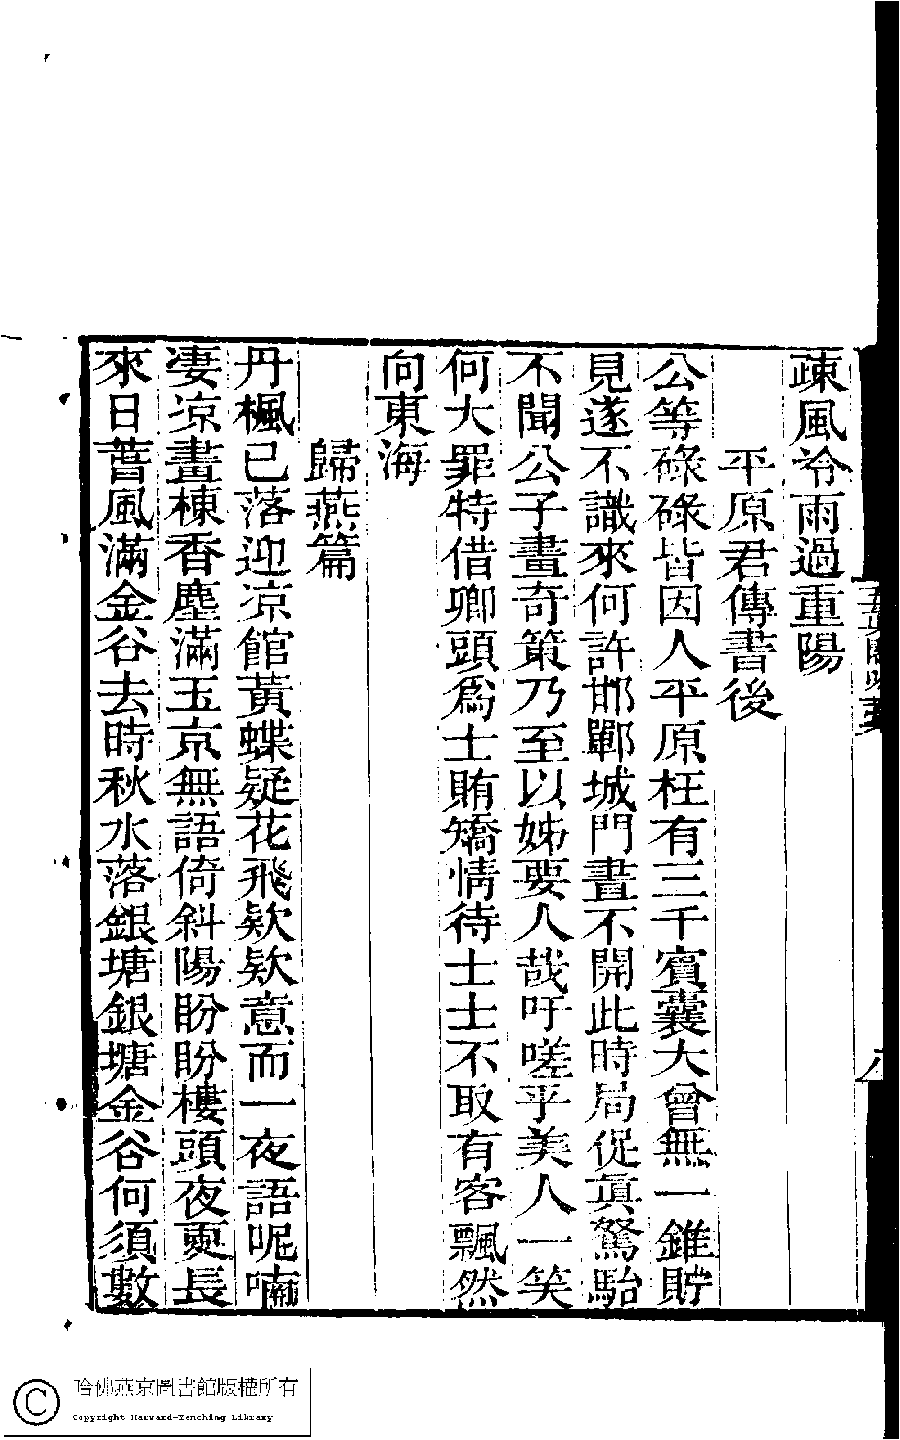 疎風冷雨過重陽
平原君傳書後
公等碌碌皆因人平原枉有三千賓囊大曾無一錐貯
見遂不識來何許邯鄲城門晝不開此時局促眞駑駘
不聞公子畫奇策乃至以姊要人哉吁嗟乎美人一笑
何大罪特借卿頭爲士賄矯情待士士不取有客飄然
向東海
歸燕篇
丹楓已落迎凉館黃蝶疑花飛欵欵意而一夜語呢喃
凄凉畫棟香塵滿玉京無語倚斜陽盼盼樓頭夜更長
來日蓍風滿金谷去時秋水落銀塘銀塘金谷何須數
八
哈佛燕京圖書館版權所有
Copyright Harvard-Yenching Library